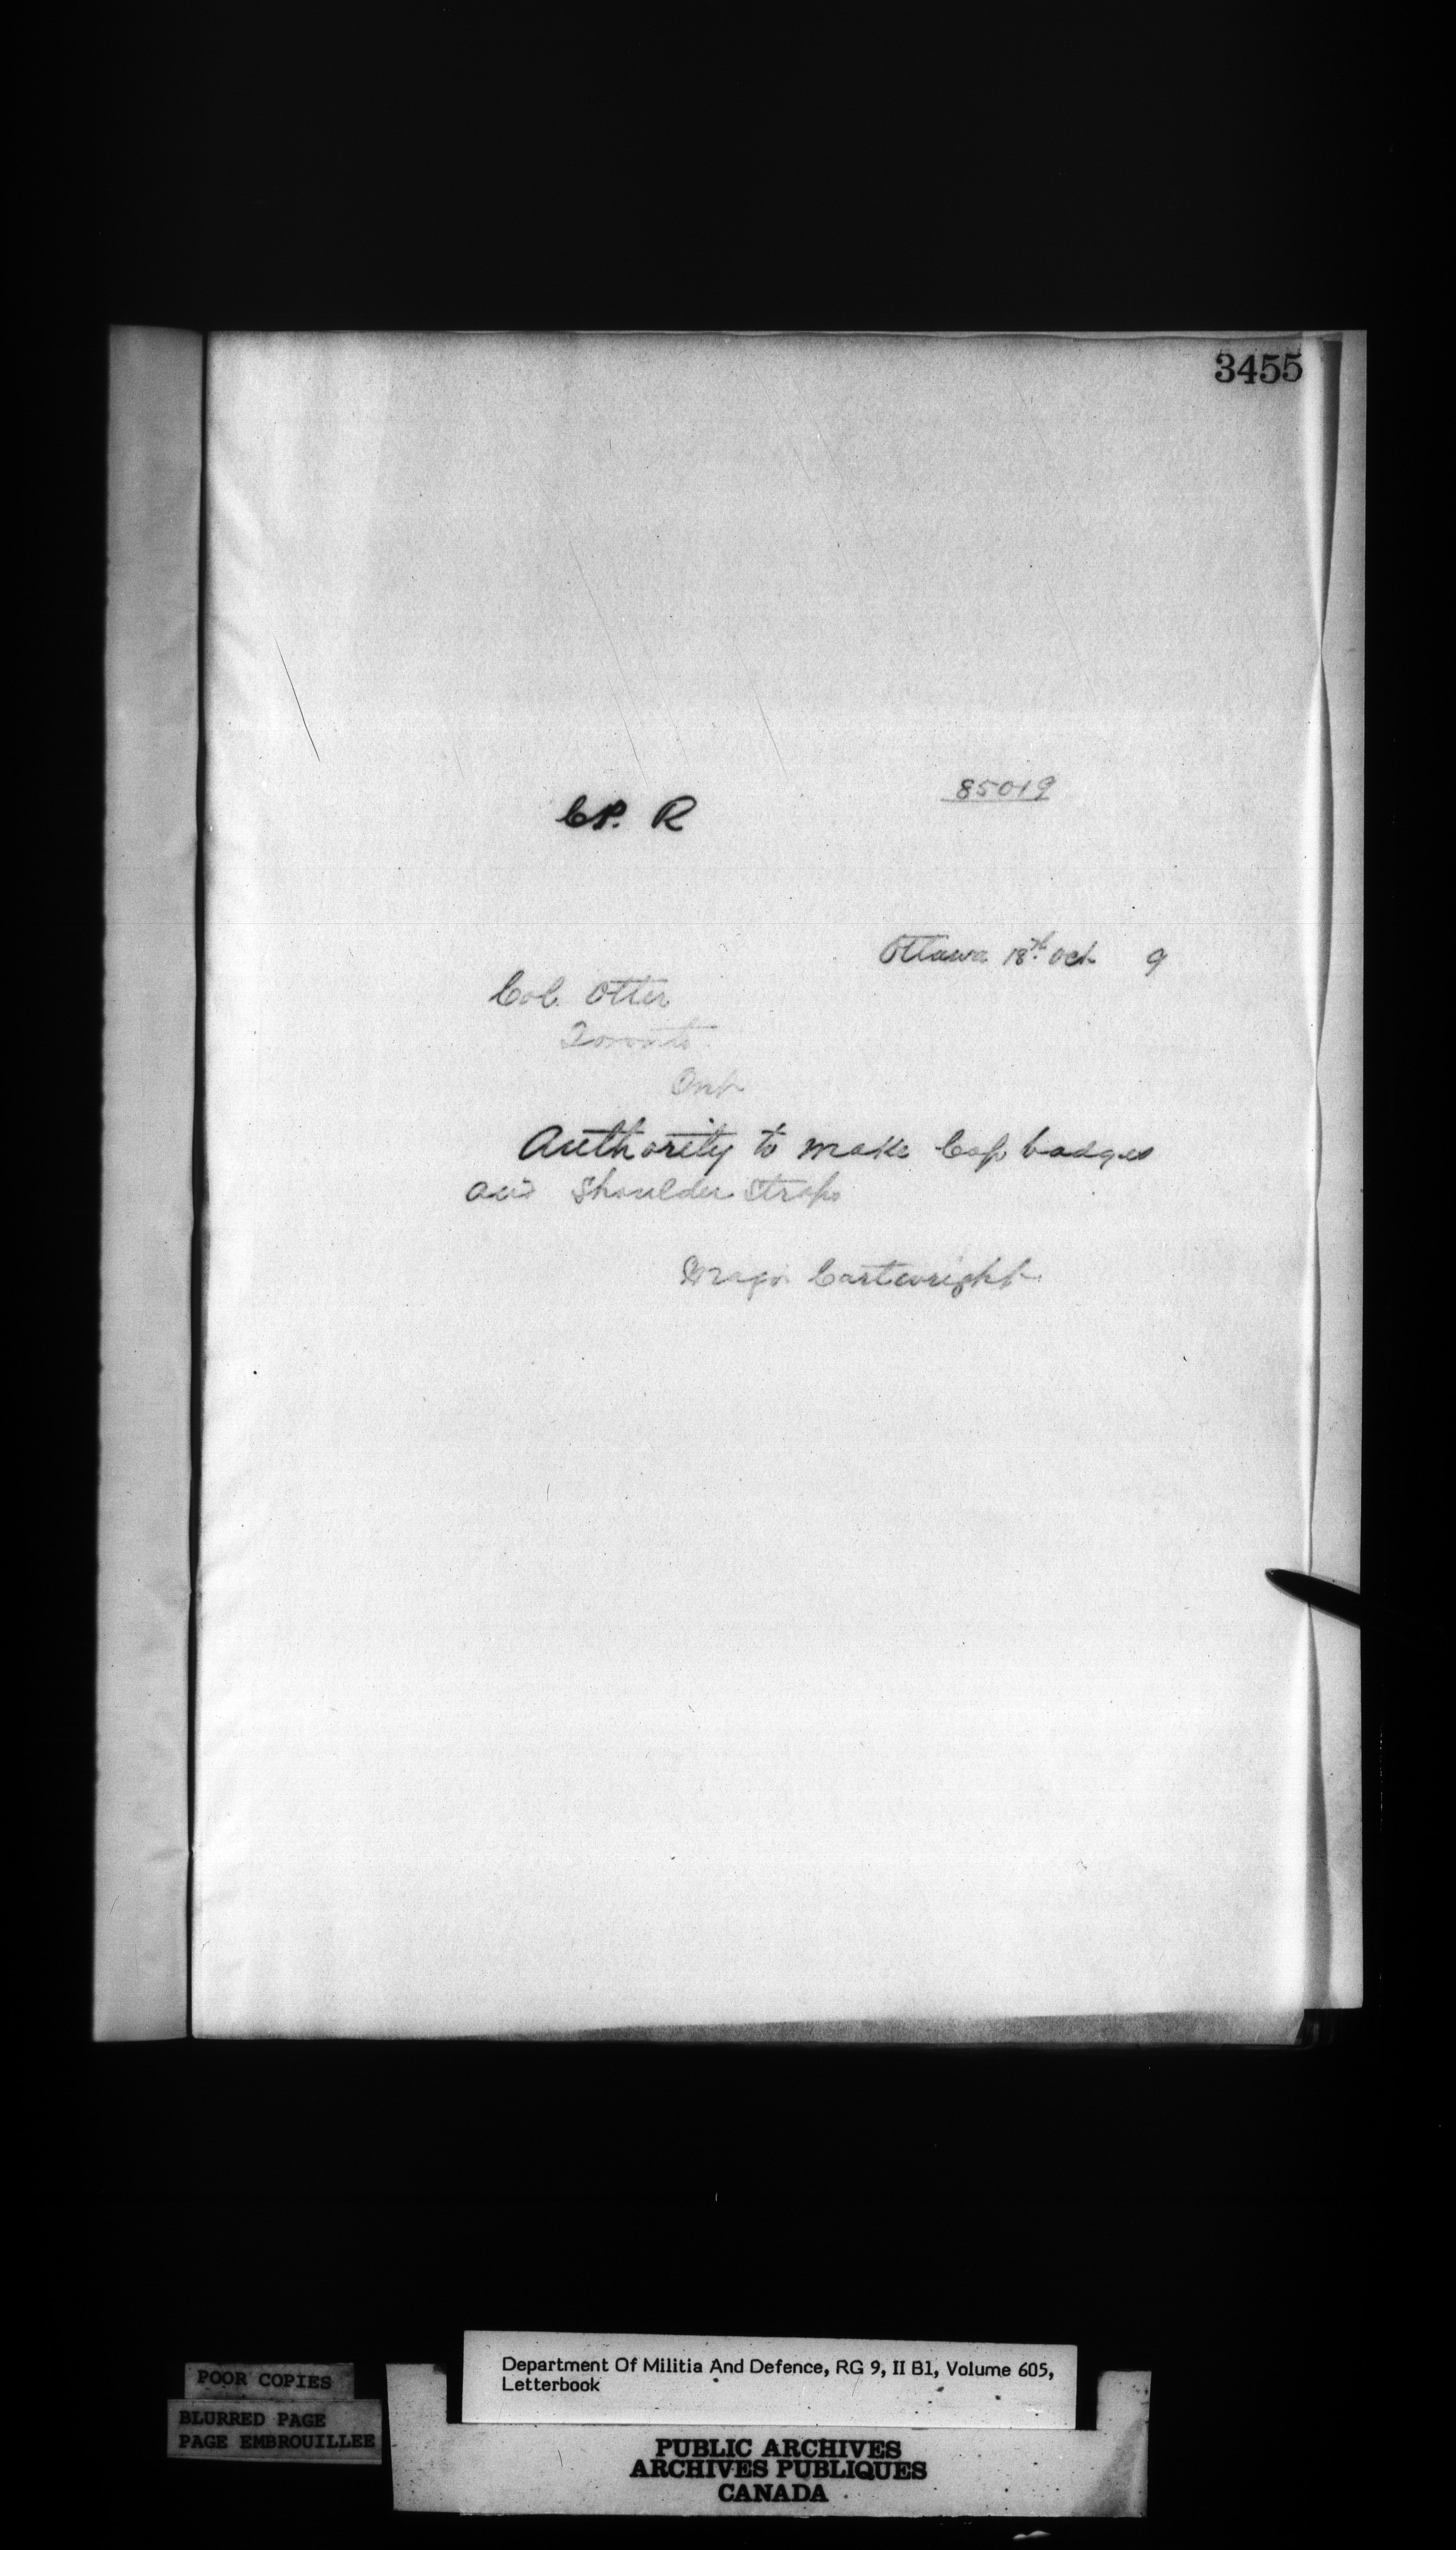 3455
85019
C.P. R
Ottawa 18th Oct 9
Col. Otter
Toronto
Ont
Authority to make Cap badges
and Shoulder Straps
Major Cartwright
Department Of Militia And Defence, RG 9, II B1, Volume 605,
Letterbook
POOR COPIES
BLURRED PAGE
PAGE EMBROUILLEE
PUBLIC ARCHIVES
ARCHIVES PUBLIQUES
CANADA